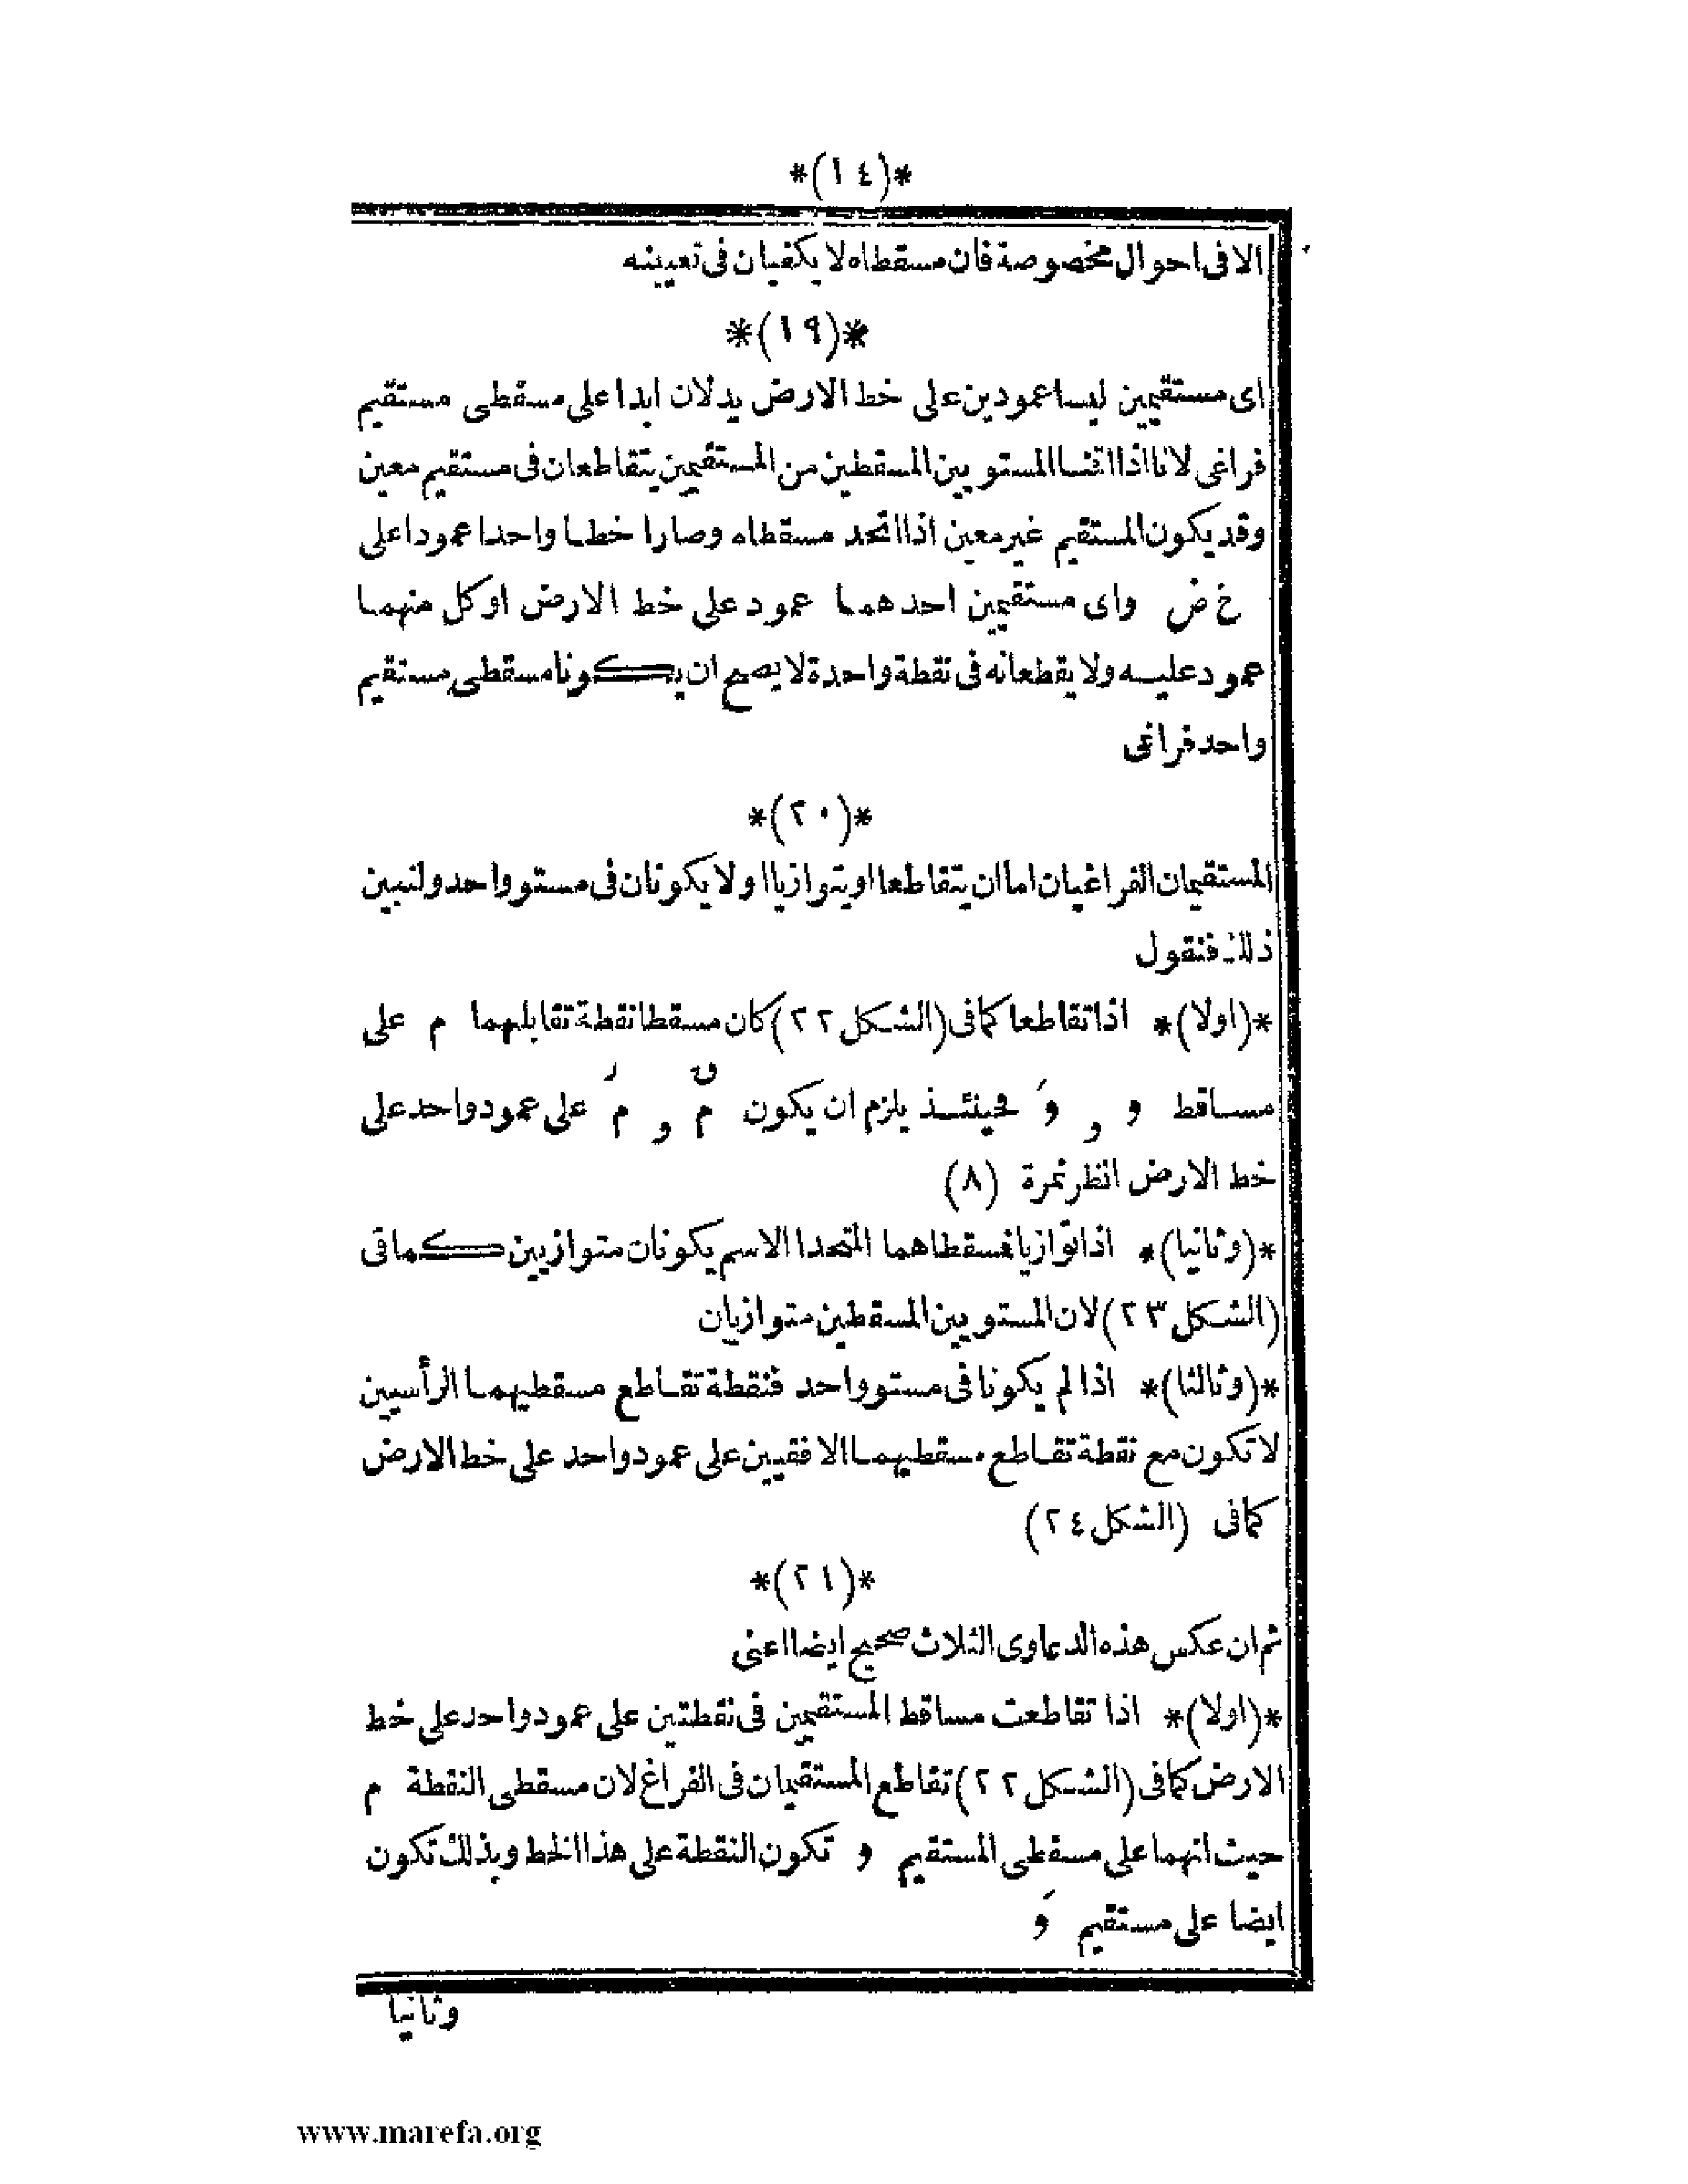 *(١٤)*
الا فى احوال مخصوصة فان مسقطاه لا يكفيان فى تعيينه
*(١٩)*
اى مستقيمين ليسا عمودين على خط الارض يدلان ابدا على مسقطى مستقيم
فراغى لانا اذا اقنا المستويين المسقطين من المستقيمين يتقاطعان فى مستقيم معين
وقد يكون المستقيم غير معين اذا اتحد مسقطاه وصارا خطا واحدا عمودا على
خ ض واى مستقيمين احدهما عمود على خط الارض او كل منهما
عمود عليه ولا يقطعانه فى نقطة واحدة لا يصح ان يكونا مسقطى مستقيم
واحد فراغى
*(٢٠)*
المستقيمان الفراغيان اما ان يتقاطعا او يتوازيا او لا يكونان فى مستو واحد ولنبين
ذلك فنقول
*(اولا)* اذا تقاطعا كما فى (الشكل ٢٢) كان مسقطا نقطة تقابلهما م على
مساقط و و وَ فحينئذ يلزم ان يكون مٯ و مَر على عمود واحد على
خط الارض انظر نمرة (٨)
*(وثانيا)* اذا توازيا فسقطاهما المتحدا الاسم يكونان متوازيين كما فى
(الشكل ٢٣) لان المستويين المسقطين متوازيان
*(وثالثا)* اذا لم يكونا فى مستو واحد فنقطة تقاطع مسقطيهما الرأسيين
لا تكون مع نقطة تقاطع مسقطيهما الافقيين على عمود واحد على خط الارض
كما فى (الشكل ٢٤)
*(٢١)*
ثم ان عكس هذه الدعاوى الثلاث صحيح ايضا اعنى
*(اولا)* اذا تقاطعت مساقط المستقيمين فى نقطتين على عمود واحد على خط
الارض كما فى (الشكل ٢٢) تقاطع المستقيمان فى الفراغ لان مسقطى النقطة م
حيث انهما على مسقطى المستقيم و تكون النقطة على هذا الخط وبذلك تكون
ايضا على مستقيم وَ
وثانيا
www.marefa.org